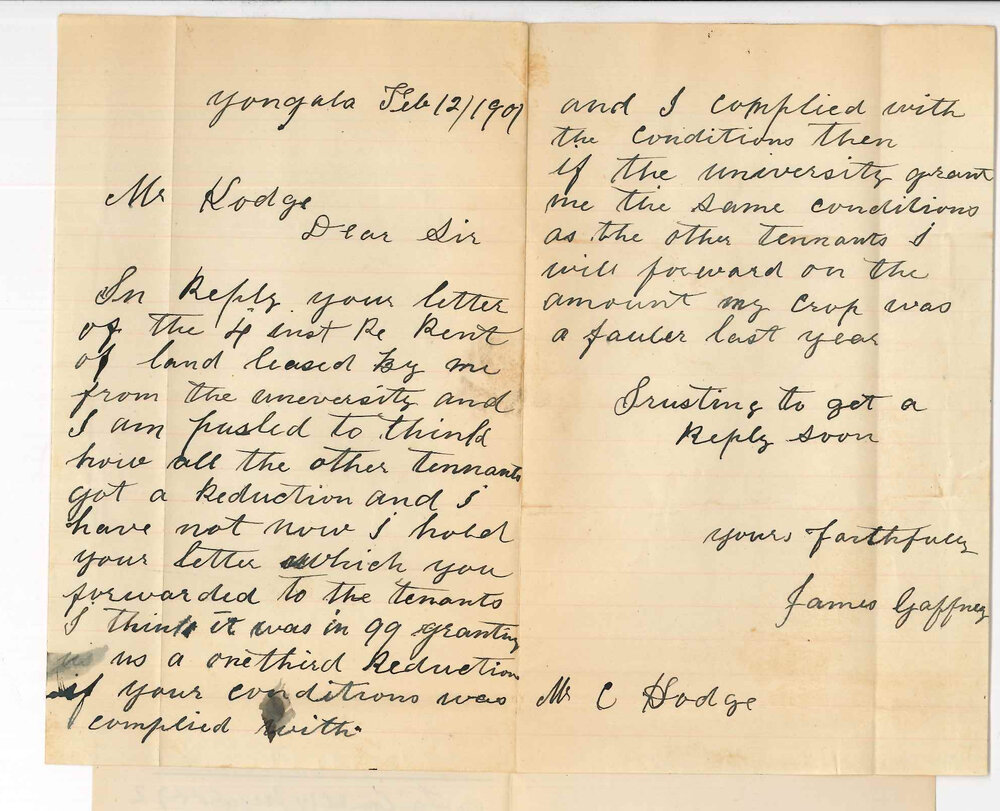 Yongala Feb 12/1901
Mr Hodge
Dear Sir
In Reply your letter
of the 4 inst Re Rent
of land leased by me
from the uneversity and
I am pusled to think
how all the other tennants
got a Reduction and I
have not now I hold
your letter which you
forwarded to the tenants
I think it was in 99 granting
us us a onethird Reduction
if your conditions was
complied with
and I complied with
the conditions then
if the university grant
me the same conditions
as the other tennants I
will forward on the
amount my crop was
a fauler last year
Trusting to get a
Reply soon
yours faithfully
James Gaffney
Mr C Hodge